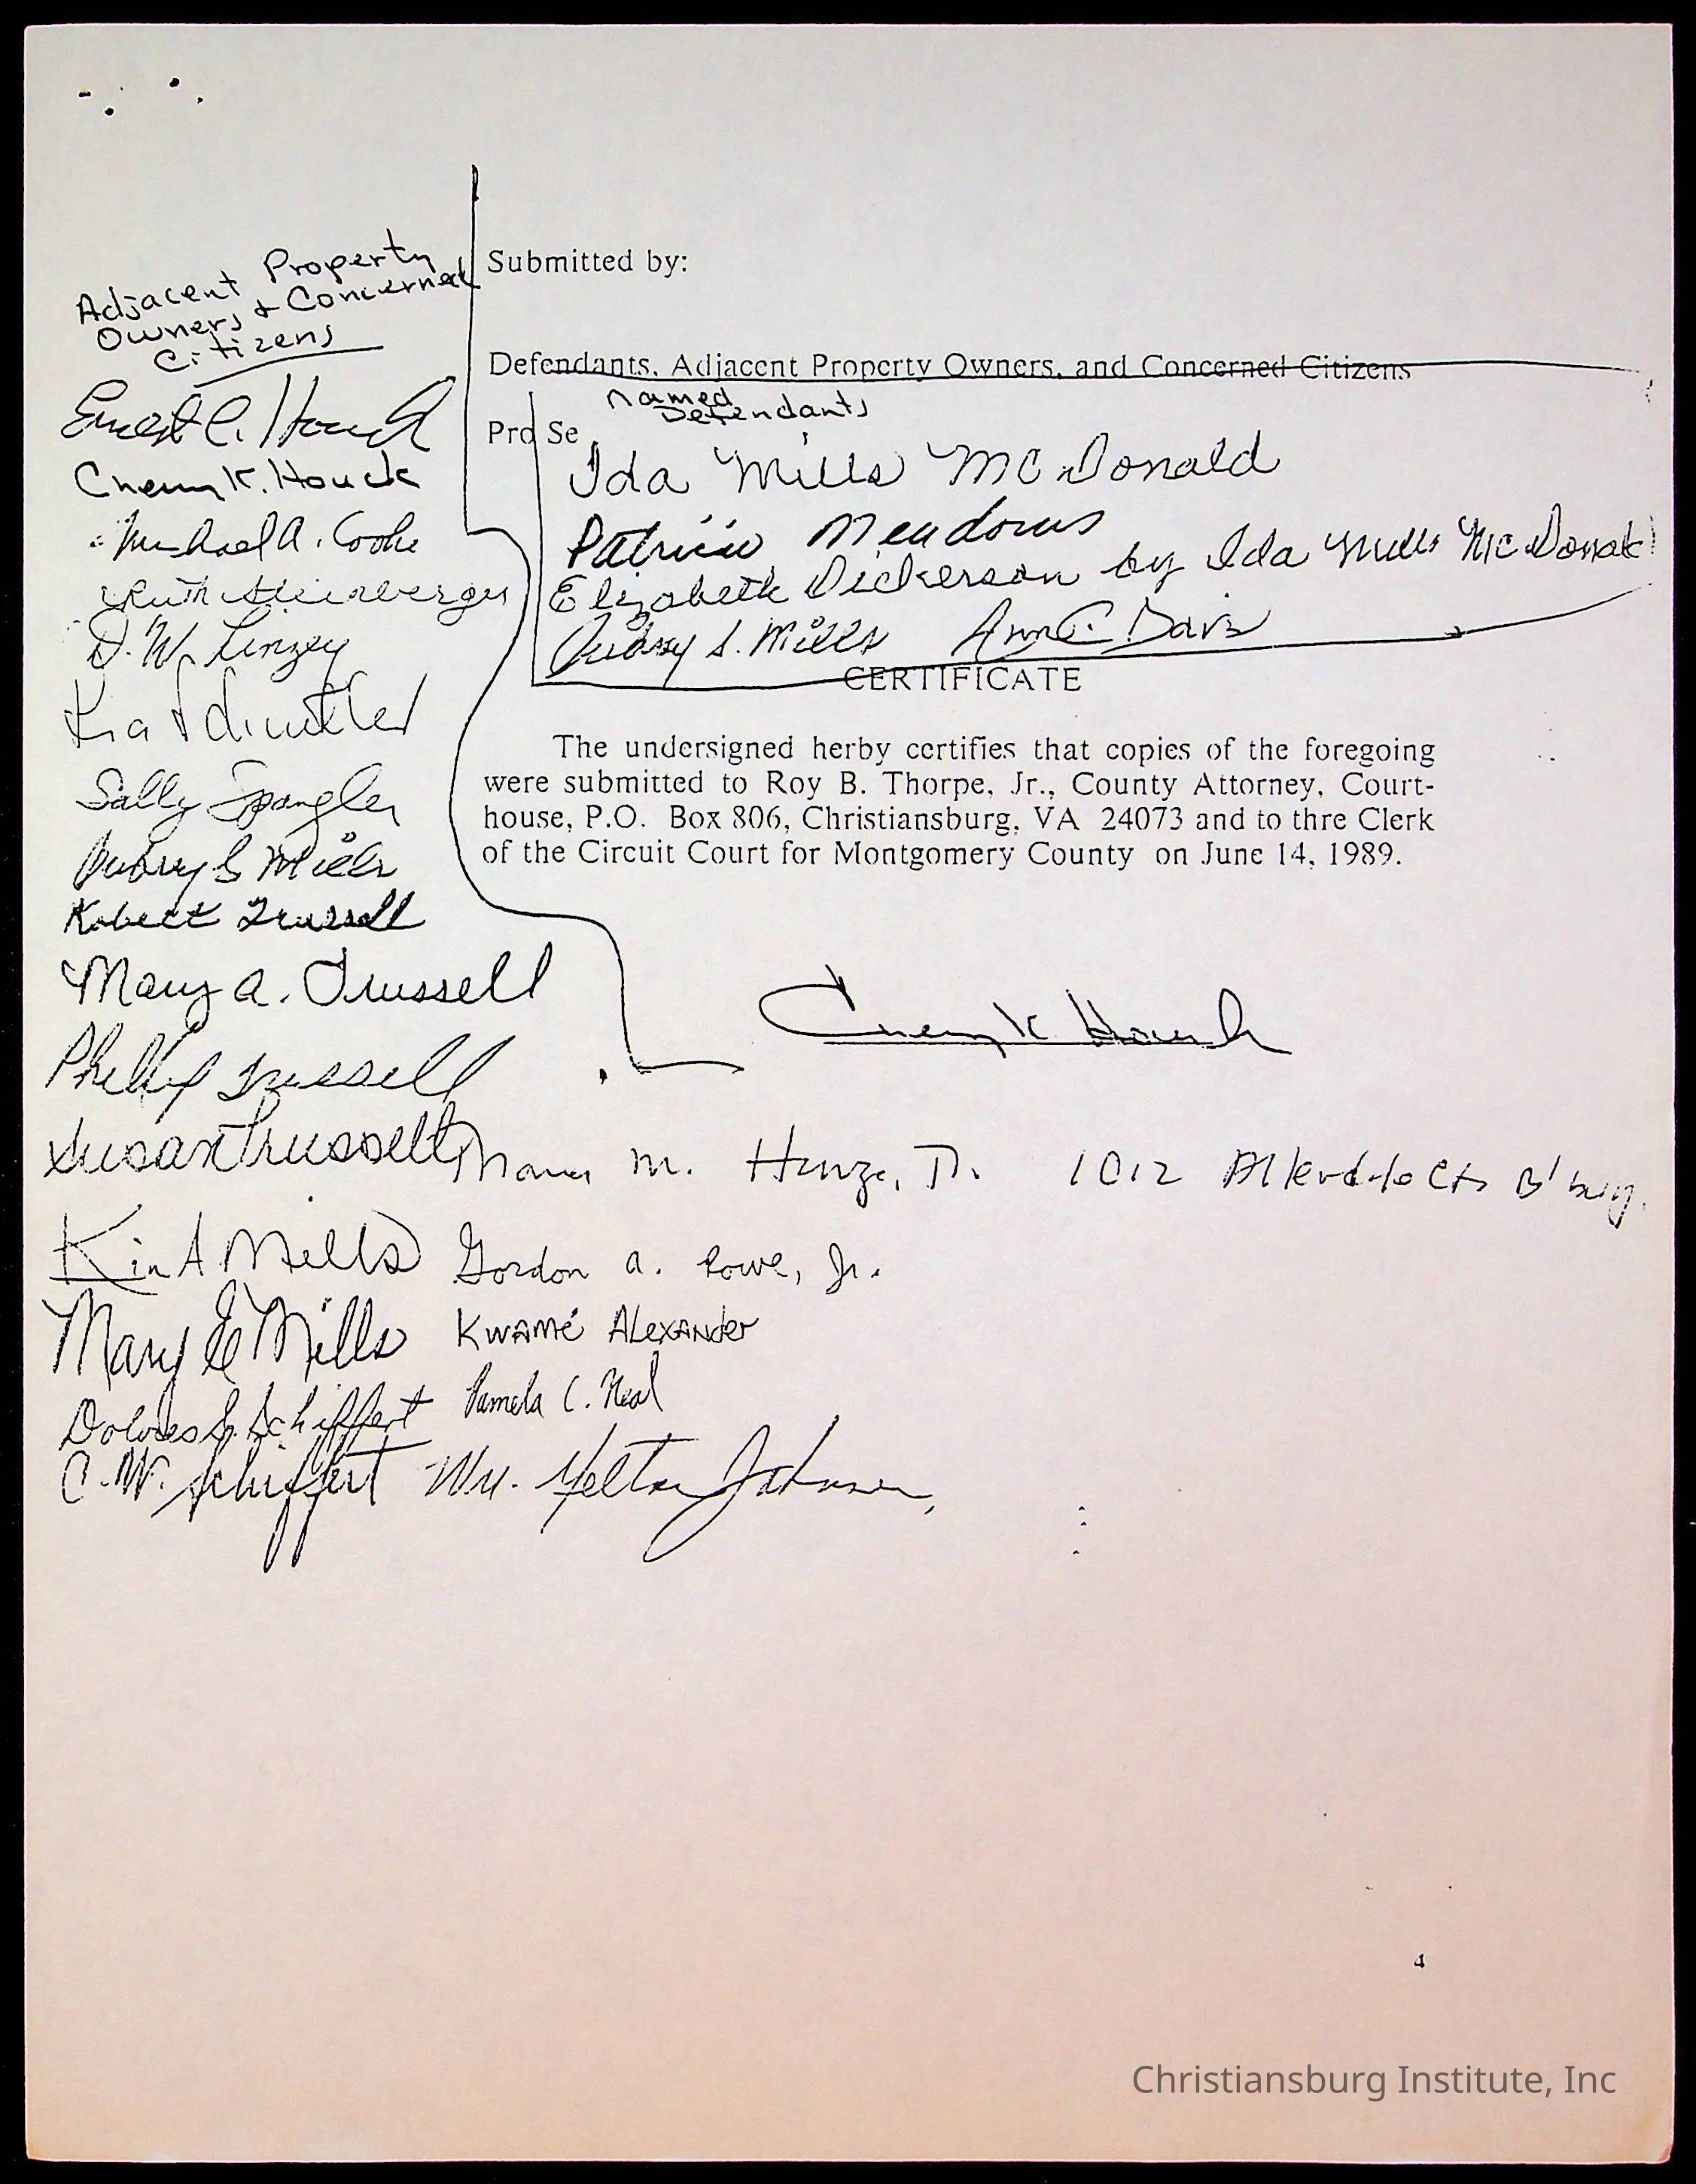 Submitted by:
Adjacent Property
Owners & Concerned
Citizens
Defendants, Adjacent Property Owners, and Concerned Citizens
Named
Defendants
Pro Se
Ida Mills McDonald
Patricia Meadows
Elizabeth Dickerson by Ida Mills McDonald
Aubrey S. Mills Ann C. Davis
Ernest C. Houck
Cheryl K. Houck
Michael A. Cooke
Ruth Steinberger
D. W. Linzey
Sally Spangler
Aubrey S Mills
Robert Trussell
Mary A. Trussell
CERTIFICATE
The undersigned herby certifies that copies of the foregoing
were submitted to Roy B. Thorpe, Jr., County Attorney, Court-
house, P.O. Box 806, Christiansburg, VA 24073 and to thre Clerk
of the Circuit Court for Montgomery County on June 14, 1989.
Cheryl K Houck
Trussell
Susan Trussell
M. 1012
Mills Gordon A. Rowe, Jr.
Mary E Mills Kwamé Alexander
Dolores S. Schiffert Pamela C. Neal
C. W. Schiffert Wm. Johnson
4
Christiansburg Institute, Inc